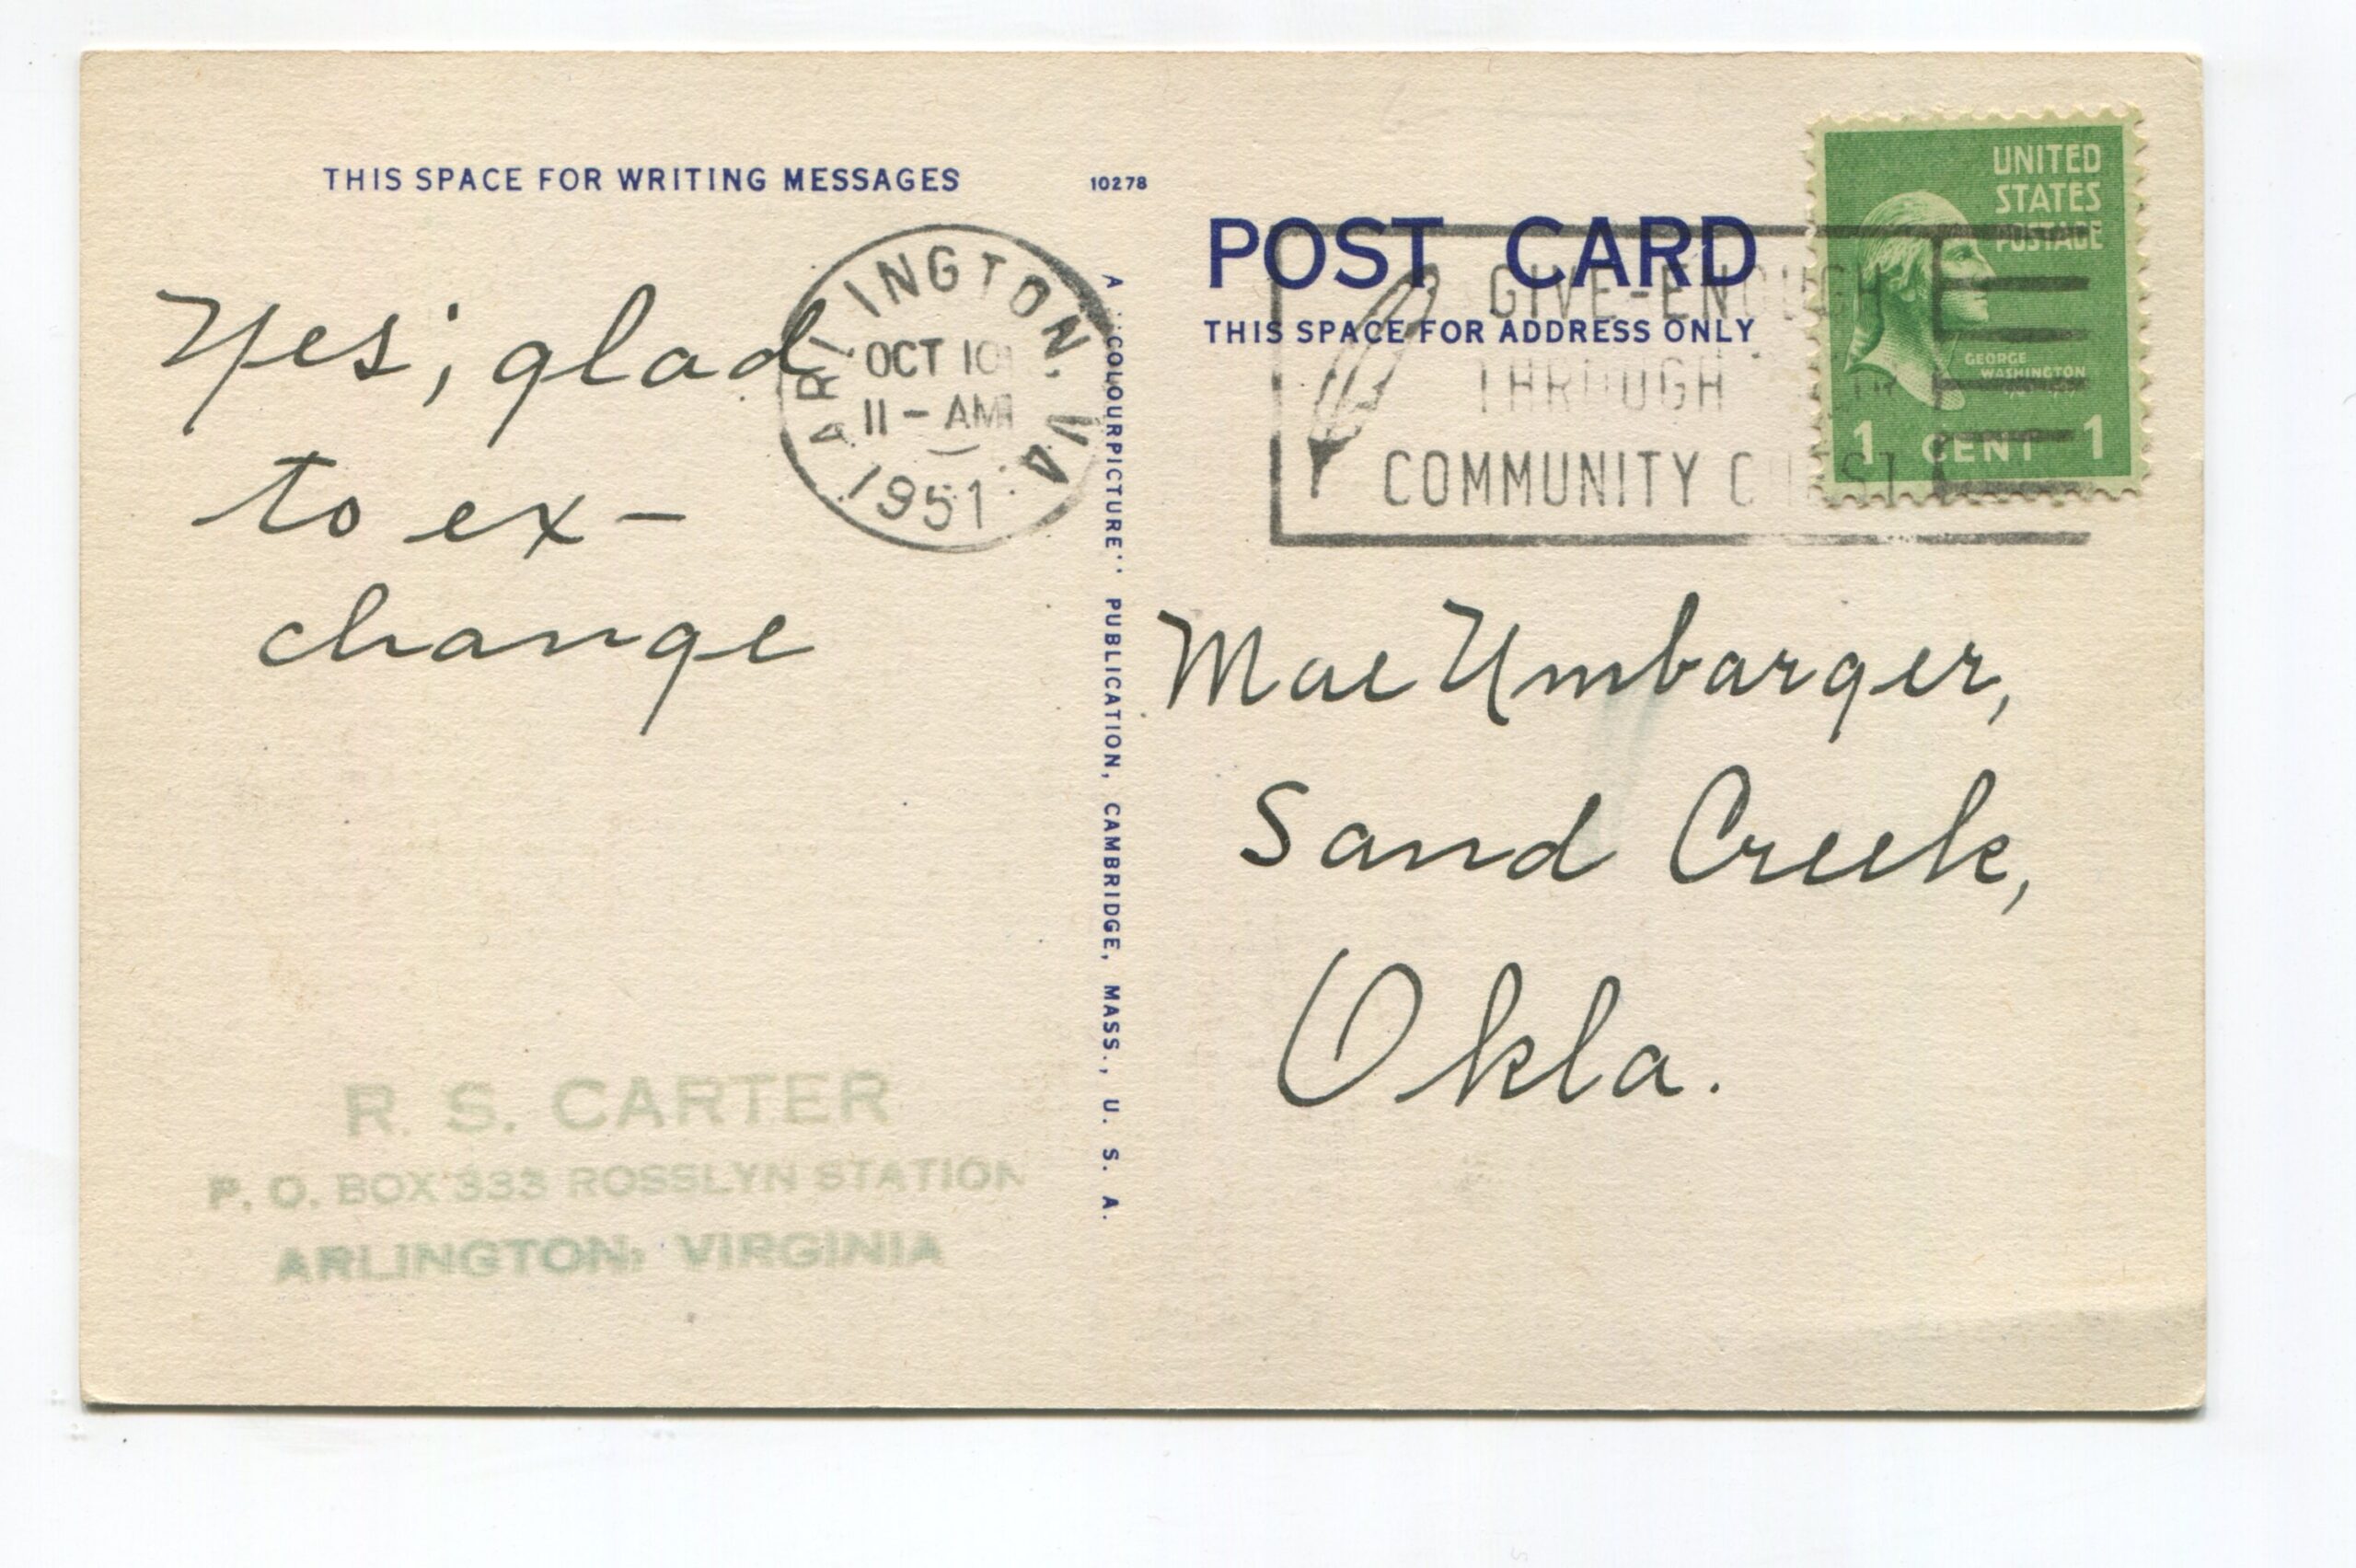 THIS SPACE FOR WRITING MESSAGES
10278
Yes; glad
to ex-
change
ARLINGTON. VA
OCT 10
11-AM
1951
R. S. CARTER
P. O. BOX 333 ROSSLYN STATION
ARLINGTON, VIRGINIA
A "COLOURPICTURE" PUBLICATION, CAMBRIDGE, MASS., U. S. A.
POST CARD
THIS SPACE FOR ADDRESS ONLY
GIVE-ENOUGH
THROUGH
COMMUNITY CHEST
UNITED
STATES
POSTAGE
GEORGE
WASHINGTON
1 CENT 1
Mae Umbarger,
Sand Creek,
Okla.